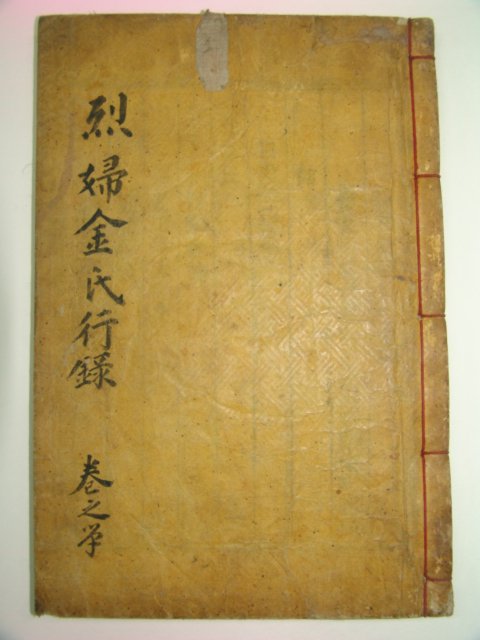 烈婦金氏行錄
卷之